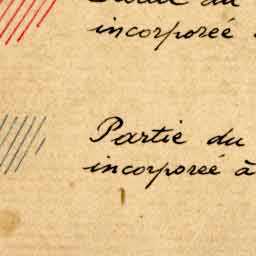 du
incorporeé
Partie du
incorporeé à